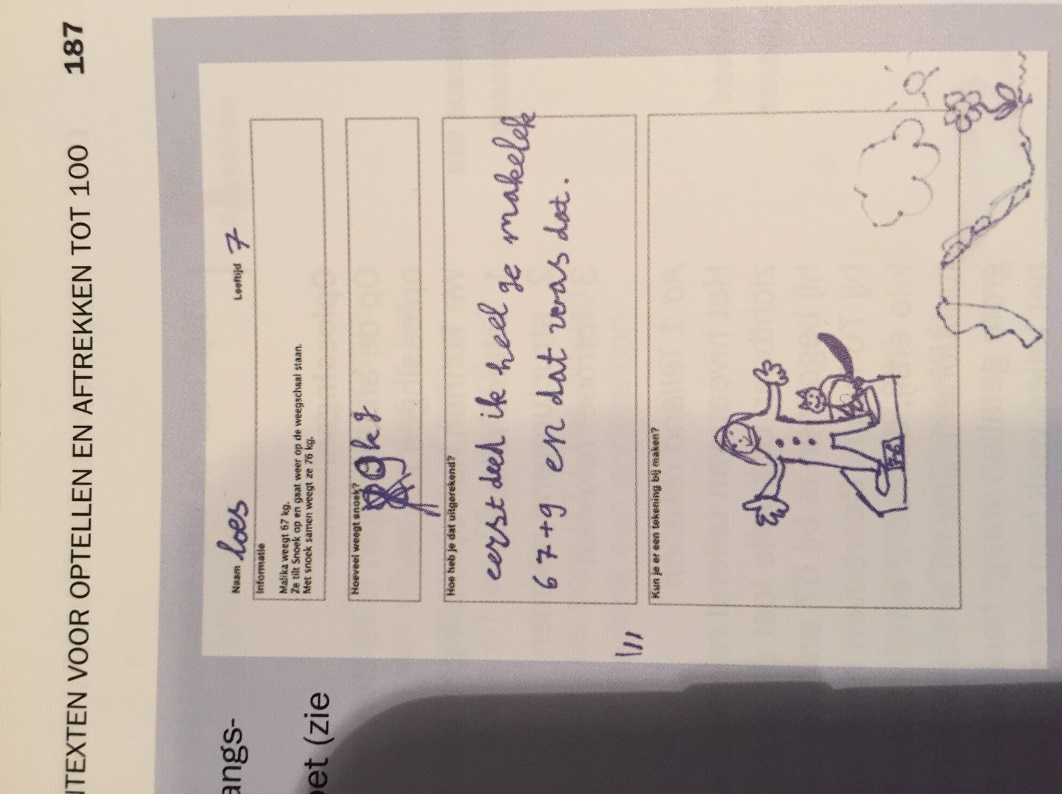 NTEXTEN VOOR OPTELLEN EN AFTREKKEN TOT 100 187
angs-
oet (zie
Naam loes Leeftijd 7
Informatie
Malika weegt 67 kg.
Ze tilt Snoek op en gaat weer op de weegschaal staan.
Met snoek samen weegt ze 76 kg.
Hoeveel weegt snoek?
9kg
Hoe heb je dat uitgerekend?
eerst deed ik heel ge makelek
67+9 en dat was dat.
Kun je er een tekening bij maken?
76